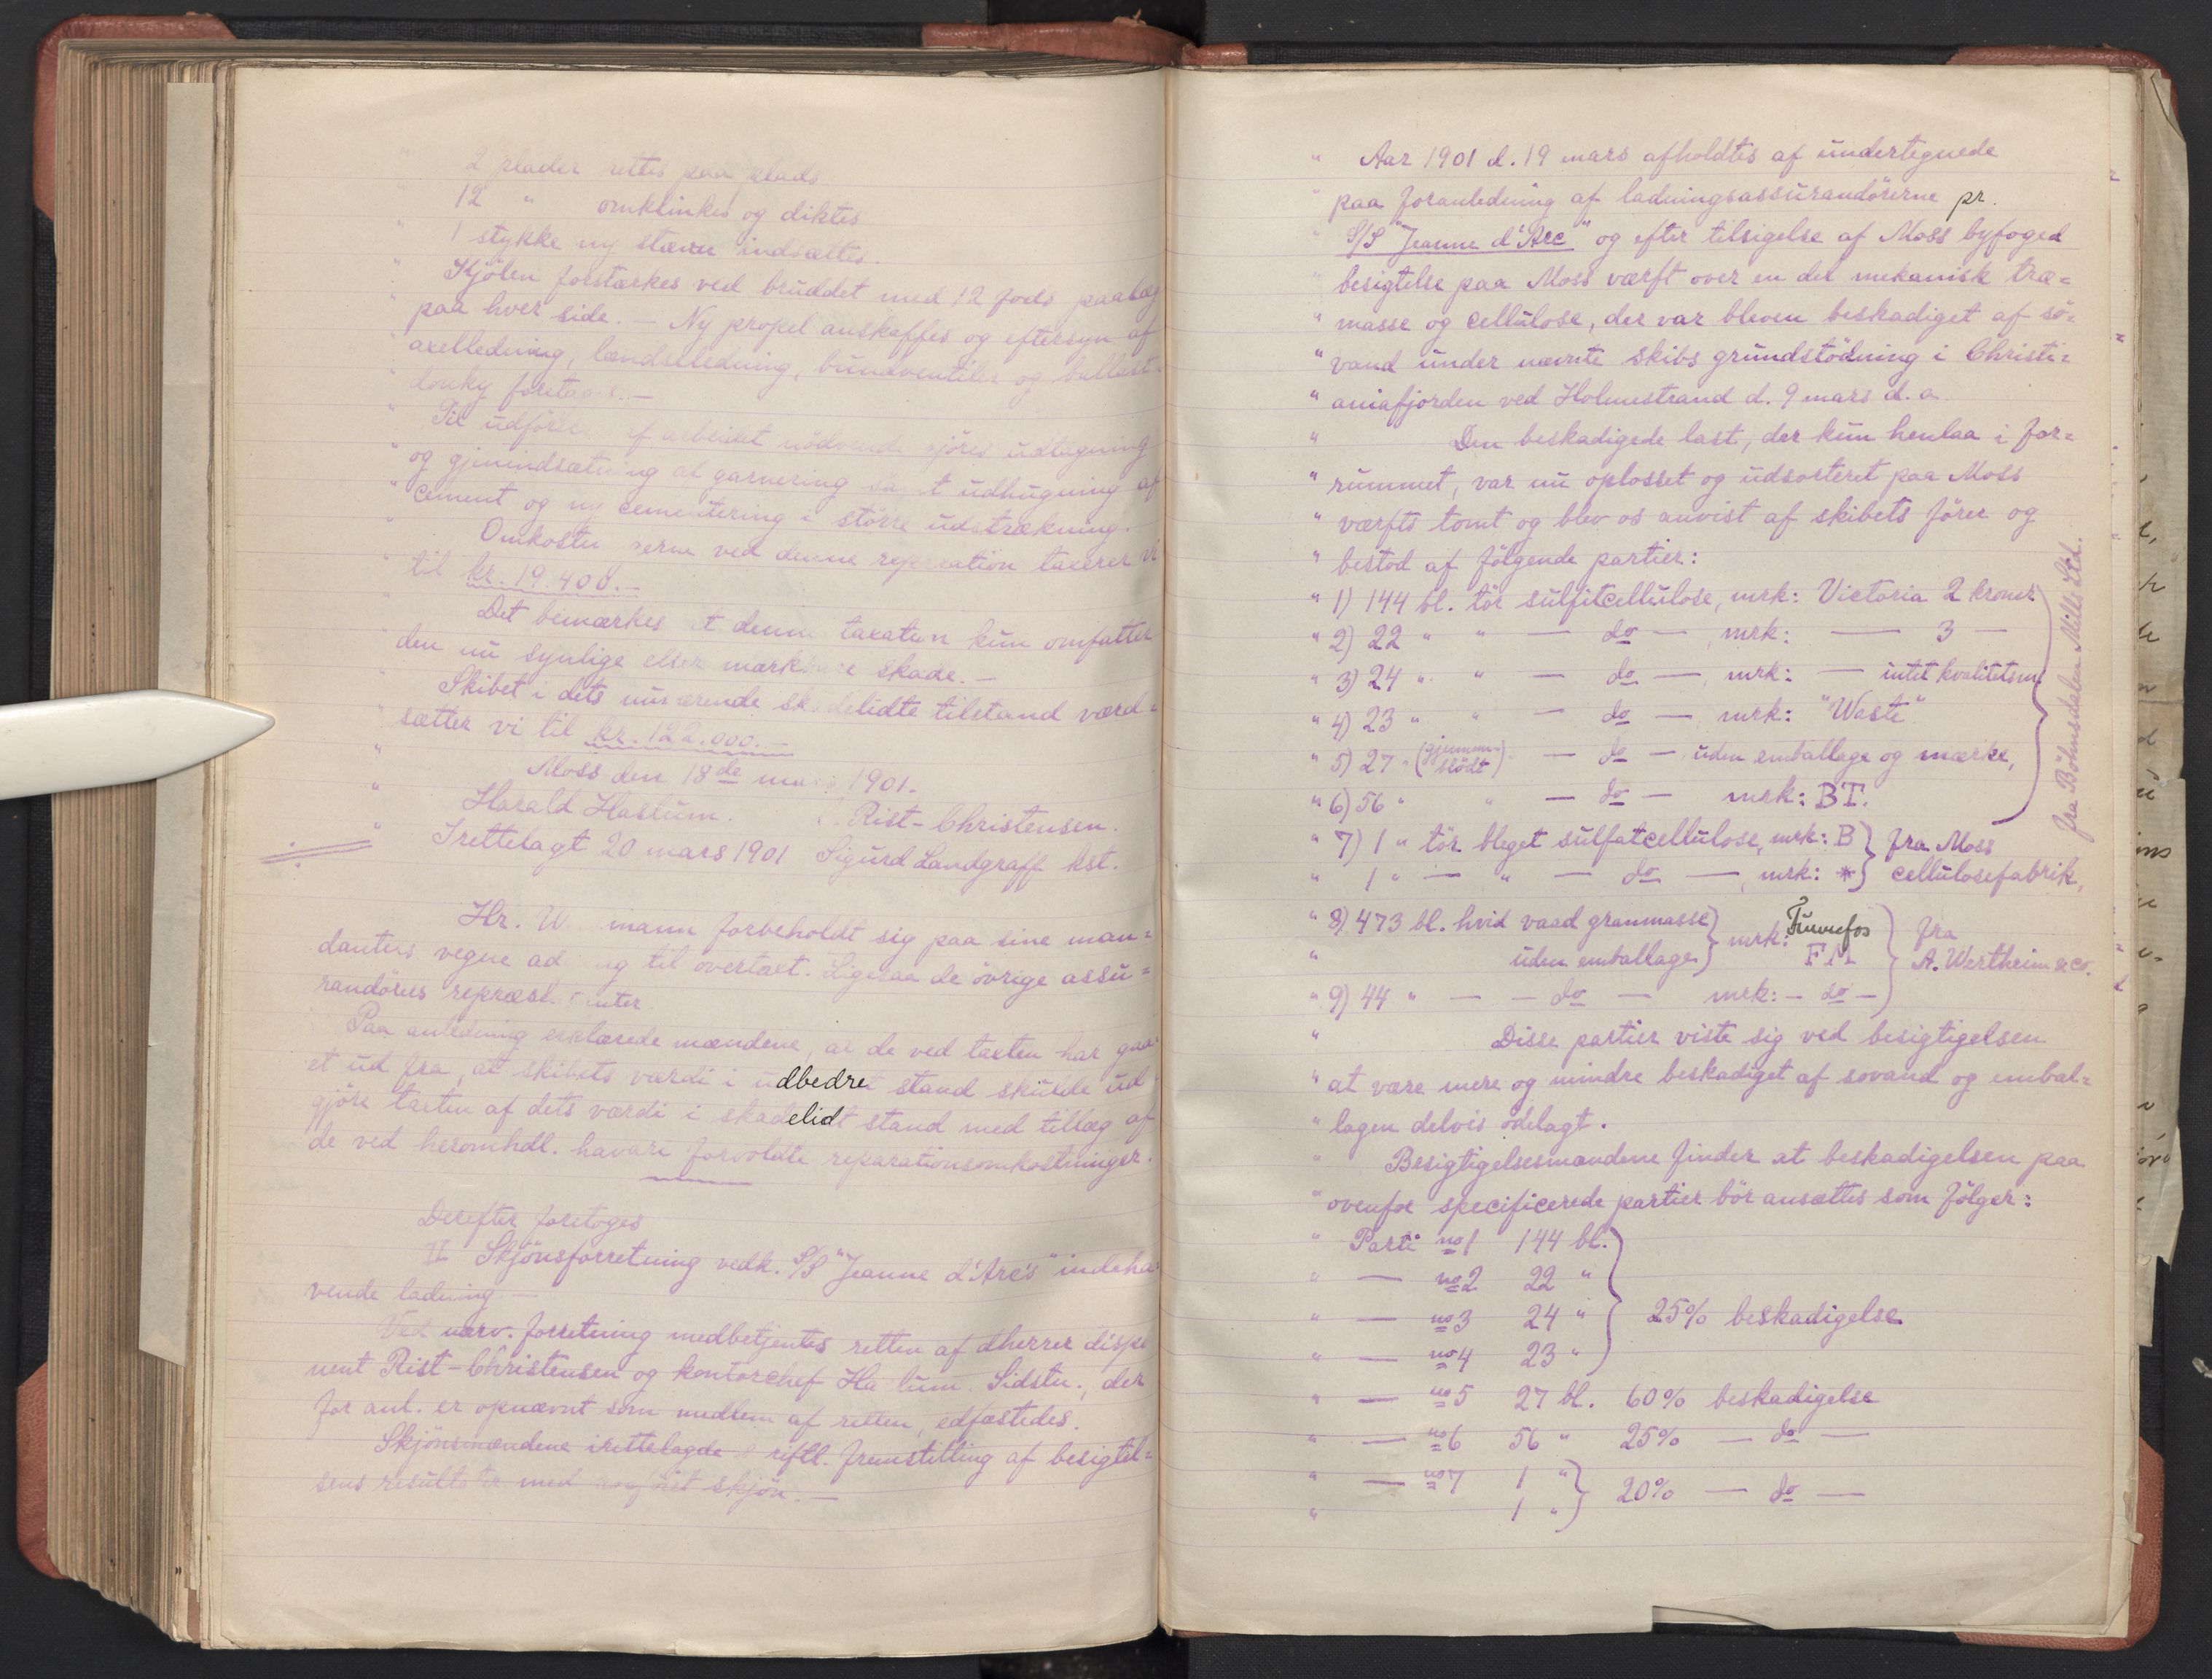 " 2 plader rettes paa plads
12 " omklinkes og diktes
" 1 stykke ny stævn indsættes.
" Kjölen forstærkes ved bruddet med 12 fods paalæg
" paa hver side. — Ny propel anskaffes og eftersyn af
" axelledning, lændseledning, bundventiler og ballast-
" tanky foretages. —
" Til udförelse af arbeidet nödvendiggjöres udtagning
" og gjenindsætning af garnering samt udhugning af
" cement og ny cementering i större udstrækning.
" Omkostningerne ved denne reparation taxerer vi
" til kr. 19.400. —
" Det bemærkes at denne taxation kun omfatter
" den nu synlige eller mærkbare skade. —
" Skibet i dets nuværende skadelidte tilstand værd-
" sætter vi til kr. 122.000. —
" Moss den 18de mars 1901.
" Harald Haslum. Rist-Christensen.
" Irettelagt 20 mars 1901 Sigurd Landgraff kst.
Hr. W mann forbeholdt sig paa sine man-
danters vegne adgang til overtaxt. Ligesaa de övrige assu-
randörers repræsentanter.
Paa anledning erklærede mændene, at de ved taxten har gaa-
et ud fra, at skibets værdi i udbedret stand skulde ud-
gjöre taxten af dets værdi i skadelidt stand med tillæg af
de ved heromhdl. havari forvoldte reparationsomkostninger.
Derefter foretoges
II Skjönsforretning vedk. S/S "Jeanne d'Arc's" indeha-
vende ladning —
Ved nærv. forretning medbetjentes retten af dherrer dispo
nent Rist-Christensen og kontorchef Haslum. Sidstn., der
for anl. er opnævnt som medlem af retten, edfæstedes.
Skjönsmændene irettelagde skriftl. fremstilling af besigtel-
sens resultater med paaført skjön. —
" Aar 1901 d. 19 mars afholdtes af undertegnede
" paa foranledning af ladningsassurandörerne pr.
" S/S "Jeanne d'Arc" og efter tilsigelse af Moss byfoged
" besigtelse paa Moss værft over en del mekanisk træ-
" masse og cellulose, der var bleven beskadiget af sö-
" vand under nævnte skibs grundstödning i Christi-
" aniafjorden ved Holmestrand d. 9 mars d. a.
" Den beskadigede last, der kun henlaa i for-
" rummet, var nu oplosset og udsorteret paa Moss
" værfts tomt og blev os anvist af skibets förer og
" bestod af fölgende partier:
" 1) 144 bl. tör sulfitcellulose, mrk: Victoria 2 kroner
" 2) 22 " " — do — , mrk: — 3 —
" 3) 24 " " — do — , mrk: — intet kvalitetsm.
" 4) 23 " " — do — , mrk: "Waste"
" 5) 27 " (gjennem-blödt) — do — uden emballage og mærke,
" 6) 56 " " — do — mrk: BT.
fra Böhnsdalen Mills Ltd.
" 7) 1 " tör bleget sulfatcellulose, mrk: B } fra Moss
" 1 " — " — do — , mrk: * } cellulosefabrik,
" 8) 473 bl. hvid vaad granmasse } mrk: Tunefos } fra
" uden emballage } FM } A. Wertheim & co.
" 9) 44 " — — do — mrk: — do —
" Disse partier viste sig ved besigtigelsen
" at være mere og mindre beskadiget af sovand og embal-
" lagen delvis ödelagt.
" Besigtigelsesmændene finder at beskadigelsen paa
" ovenfor specificerede partier bör ansættes som fölger:
" Parti no 1 144 bl.
" — no 2 22 "
" — no 3 24 " } 25% beskadigelse
" — no 4 23 "
" — no 5 27 bl. 60% beskadigelse
" — no 6 56 " 25% — do —
" — no 7 1 " } 20% — do —
" 1 " }